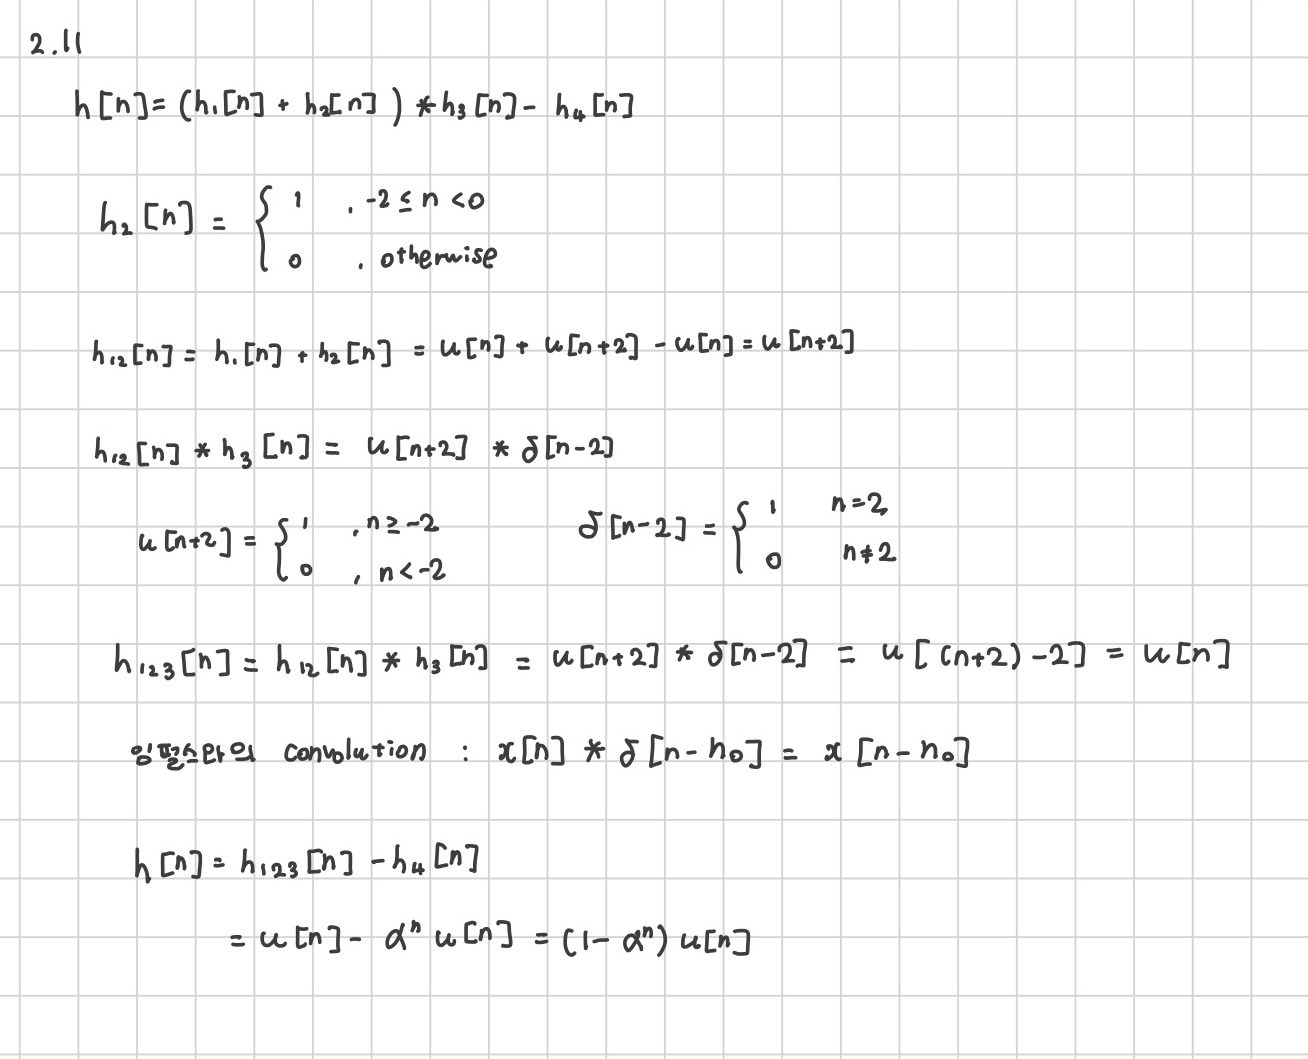 2.11
h[n] = (h₁[n] + h₂[n]) * h₃[n] - h₄[n]
h₂[n] = { 1 , -2 ≤ n < 0
0 , otherwise
h₁₂[n] = h₁[n] + h₂[n] = u[n] + u[n+2] - u[n] = u[n+2]
h₁₂[n] * h₃[n] = u[n+2] * δ[n-2]
u[n+2] = { 1 , n ≥ -2 δ[n-2] = { 1 n=2
0 , n < -2 0 n≠2
h₁₂₃[n] = h₁₂[n] * h₃[n] = u[n+2] * δ[n-2] = u[(n+2)-2] = u[n]
임펄스와의 convolution : x[n] * δ[n-n₀] = x[n-n₀]
h[n] = h₁₂₃[n] - h₄[n]
= u[n] - αⁿ u[n] = (1-αⁿ) u[n]